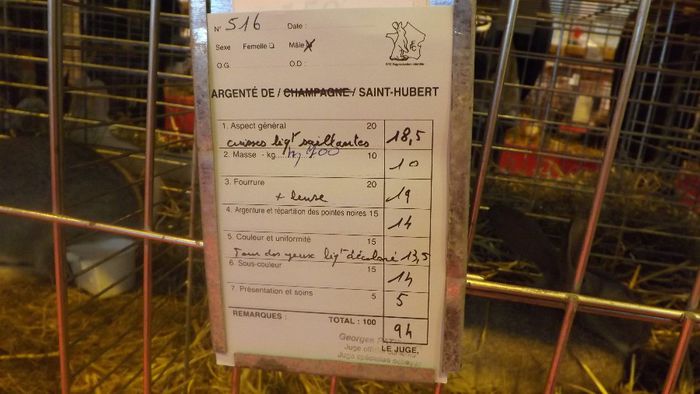 N° 516 Date :
Sexe Femelle ❑ Mâle ☒
O.G. O.D :
ARGENTÉ DE / CHAMPAGNE / SAINT-HUBERT
1. Aspect général 20 18,5
cuisses légt saillantes
2. Masse - kg 700 10 10
3. Fourrure 20 19
+ dense
4. Argenture et répartition des pointes noires 15 14
5. Couleur et uniformité 15 13,5
Tour des yeux légt décoloré
6. Sous-couleur 15 14
7. Présentation et soins 5 5
REMARQUES : TOTAL : 100 94
Georges
LE JUGE,
Juge
Juge